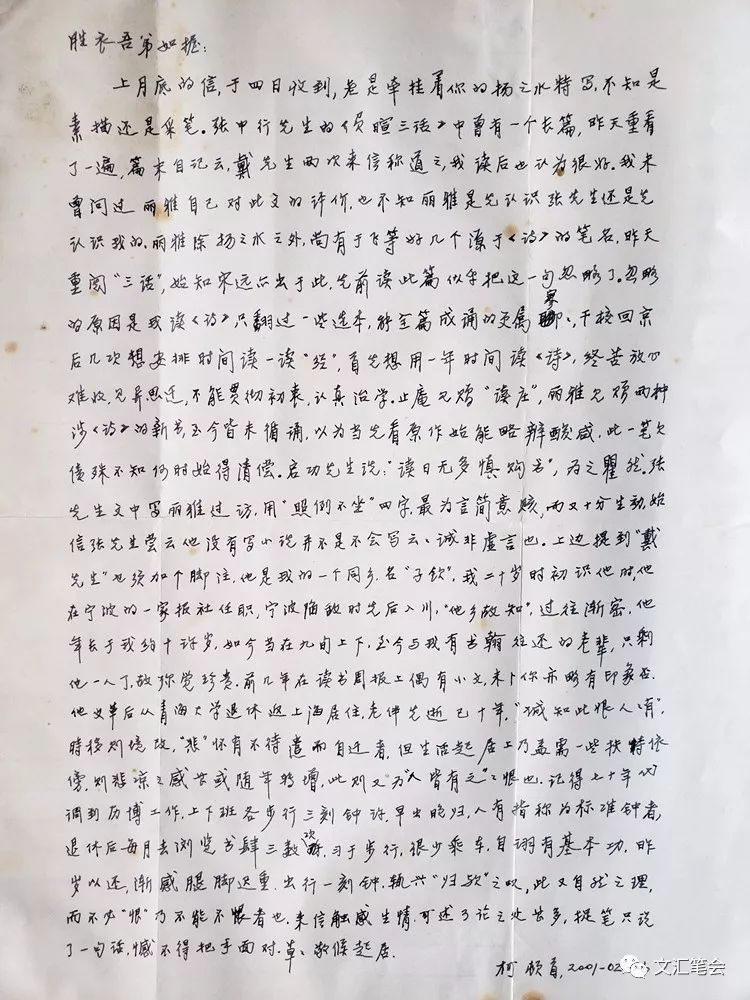 胜衣吾弟如握:
上月底的信,于四日收到,老是牵挂着你的扬之水特写,不知是
素描还是采笔。张中行先生的《负暄三话》中曾有一个长篇,昨天重看
了一遍,篇末自记云,戴先生两次来信称道之,我读后也认为很好。我未
曾问过丽雅自己对此文的评价,也不知丽雅是先认识张先生还是先
认识我的。丽雅除扬之水之外,尚有于飞等好几个源于《诗》的笔名。昨天
重阅“三话”,始知宋远亦出于此,先前读此篇似乎把这一句忽略了。忽略
的原因是我读《诗》只翻过一些选本,能全篇成诵的更属寥寥,干校回京
后几次想安排时间读一读“经”,首先想用一年时间读《诗》,终苦放心
难收,见异思迁,不能贯彻初衷,认真治学。止庵兄赠“读庄”,丽雅兄赠两种
涉《诗》的新书,至今皆未循诵,以为当先看原作始能略辨酸咸。此一笔欠
债殊不知何时始得清偿。启功先生说:“读日无多慎购书”,为之瞿然。张
先生文中写丽雅过访,用“照例不坐”四字,最为言简意赅,而又十分生动,始
信张先生尝云他没有写小说并不是不会写云云诚非虚言也。上边提到“戴
先生”也须加个脚注,他是我的一个同乡,名“子钦”,我二十岁时初识他时,他
在宁波的一家报社任职,宁波陷敌时先后入川,“他乡故知”,过往渐密。他
年长于我约十许岁,如今当在九旬上下,至今与我有书翰往还的老辈,只剩
他一人了,故弥觉珍贵。前几年在读书周报上偶有小文,未卜你亦略有印象否。
他文革后从青海大学退休返上海居住,老伴先逝已十年,“诚知此恨人人有”,
时移则境改,“悲”怀有不待遣而自迁者,但生活起居上乃孟需一些扶持依
傍,则悲凉之感若或随年转增,此则又为“人皆有之”之恨也。记得七十年代
调到历博工作,上下班各步行三刻钟许,早出晚归,人有指称为标准钟者,
退休后每月去浏览书肆三数次,习于步行,很少乘车,自诩有基本功。昨
岁以还,渐感腿脚迟重,出行一刻钟,辄兴“归欤”之叹,此又自然之理,
而不必“恨”乃不能不恨者也。来信触感生情,可述可论之处甚多,提笔只说
了一句话,憾不得把手面对。草草敬候起居。
柯 2001-02
文汇笔会